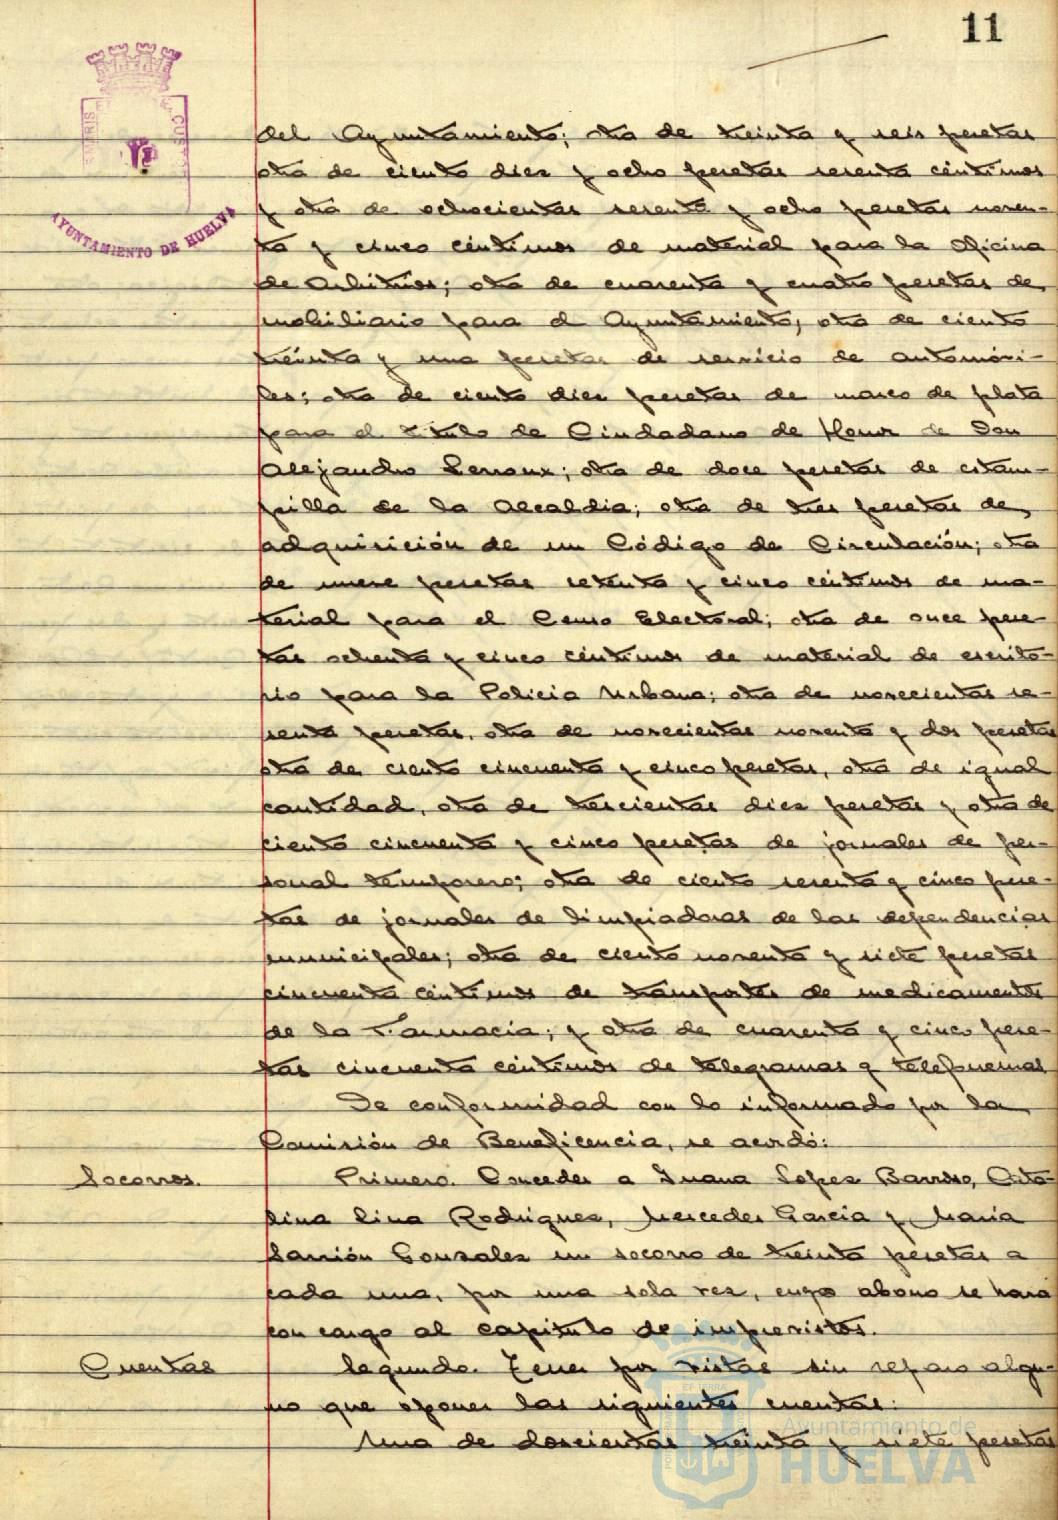 11
AYUNTAMIENTO DE HUELVA
del Ayuntamiento; otra de treinta y seis pesetas
otra de ciento diez y ocho pesetas sesenta céntimos
y otra de ochocientas sesenta y ocho pesetas noven-
ta y cinco céntimos de material para la Oficina
de Arbitrios; otra de cuarenta y cuatro pesetas de
mobiliario para el Ayuntamiento; otra de ciento
treinta y una pesetas de servicio de automóvi-
les; otra de ciento diez pesetas de marco de plata
para el Título de Ciudadano de Honor de Don
Alejandro Lerroux; otra de doce pesetas de estam-
pilla de la Alcaldia; otra de tres pesetas de
adquisición de un Código de Circulación; otra
de nueve pesetas setenta y cinco céntimos de ma-
terial para el Censo Electoral; otra de once pese-
tas ochenta y cinco céntimos de material de escrito-
rio para la Policia Urbana; otra de novecientas se-
senta pesetas, otra de novecientas noventa y dos pesetas
otra de ciento cincuenta y cinco pesetas, otra de igual
cantidad, otra de trescientas diez pesetas y otra de
ciento cincuenta y cinco pesetas de jornales de per-
sonal temporero; otra de ciento sesenta y cinco pese-
tas de jornales de limpiadoras de las dependencias
municipales; otra de ciento noventa y siete pesetas
cincuenta céntimos de transportes de medicamentos
de la Farmacia; y otra de cuarenta y cinco pese-
tas cincuenta céntimos de telegramas y telefonemas
De conformidad con lo informado por la
Comisión de Beneficencia, se acordó:
Socorros.
Primero. Conceder a Juana Lopez Barroso, Cata-
lina Lina Rodriguez, Mercedes Garcia y Maria
Sarrión Gonzalez un socorro de treinta pesetas a
cada una, por una sola vez, cuyo abono se hará
con cargo al capitulo de imprevistos.
Cuentas
Segundo. Tener por vistas sin reparo algu-
no que oponer las siguientes cuentas:
Una de doscientas treinta y siete pesetas
Ayuntamiento de
HUELVA